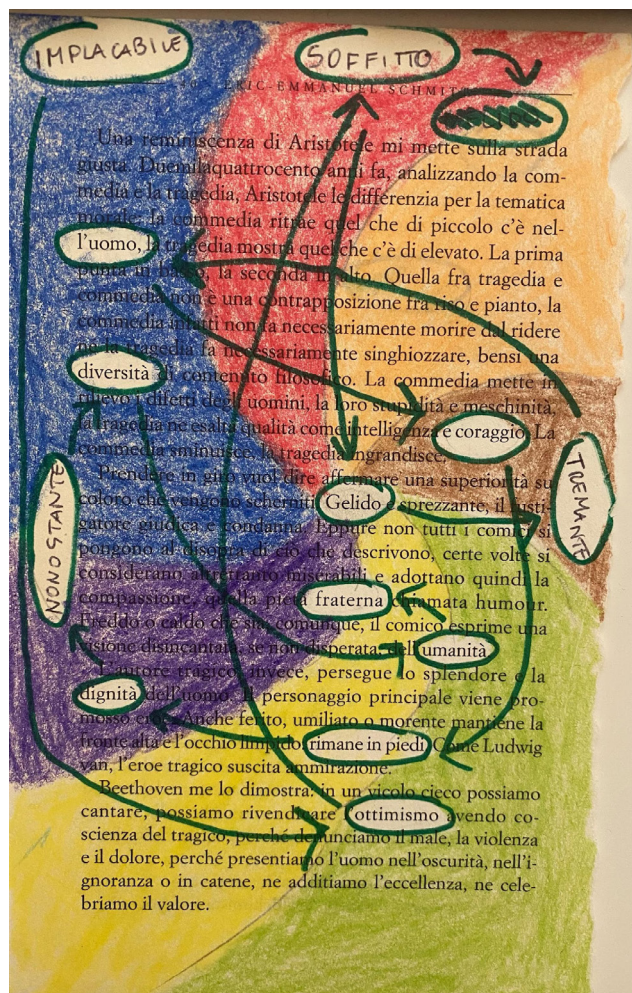 IMPLACABILE
SOFFITTO
ERIC-EMMANUEL SCHMITT
Una reminiscenza di Aristotele mi mette sulla strada
giusta. Duemilaquattrocento anni fa, analizzando la com-
media e la tragedia, Aristotele le differenzia per la tematica
morale: la commedia ritrae quel che di piccolo c'è nel-
l'uomo, la tragedia mostra quel che c'è di elevato. La prima
punta in basso, la seconda in alto. Quella fra tragedia e
commedia non è una contrapposizione fra riso e pianto, la
commedia infatti non fa necessariamente morire dal ridere
né la tragedia fa necessariamente singhiozzare, bensì una
diversità di contenuto filosofico. La commedia mette in
rilievo i difetti degli uomini, la loro stupidità e meschinità,
la tragedia ne esalta qualità come intelligenza e coraggio. La
commedia sminuisce, la tragedia ingrandisce.
TREMANTE
NONOSTANTE
Prendere in giro vuol dire affermare una superiorità su
coloro che vengono scherniti. Gelido e sprezzante, il fusti-
gatore giudica e condanna. Eppure non tutti i comici si
pongono al disopra di ciò che descrivono, certe volte si
considerano altrettanto miserabili e adottano quindi la
compassione, quella pietà fraterna chiamata humour.
Freddo o caldo che sia, comunque, il comico esprime una
visione disincantata, se non disperata, dell'umanità
L'autore tragico, invece, persegue lo splendore e la
dignità dell'uomo. Il personaggio principale viene pro-
mosso eroe. Anche ferito, umiliato o morente mantiene la
fronte alta e l'occhio limpido, rimane in piedi. Come Ludwig
van, l'eroe tragico suscita ammirazione.
Beethoven me lo dimostra: in un vicolo cieco possiamo
cantare, possiamo rivendicare ottimismo avendo co-
scienza del tragico, perché denunciamo il male, la violenza
e il dolore, perché presentiamo l'uomo nell'oscurità, nell'i-
gnoranza o in catene, ne additiamo l'eccellenza, ne cele-
briamo il valore.